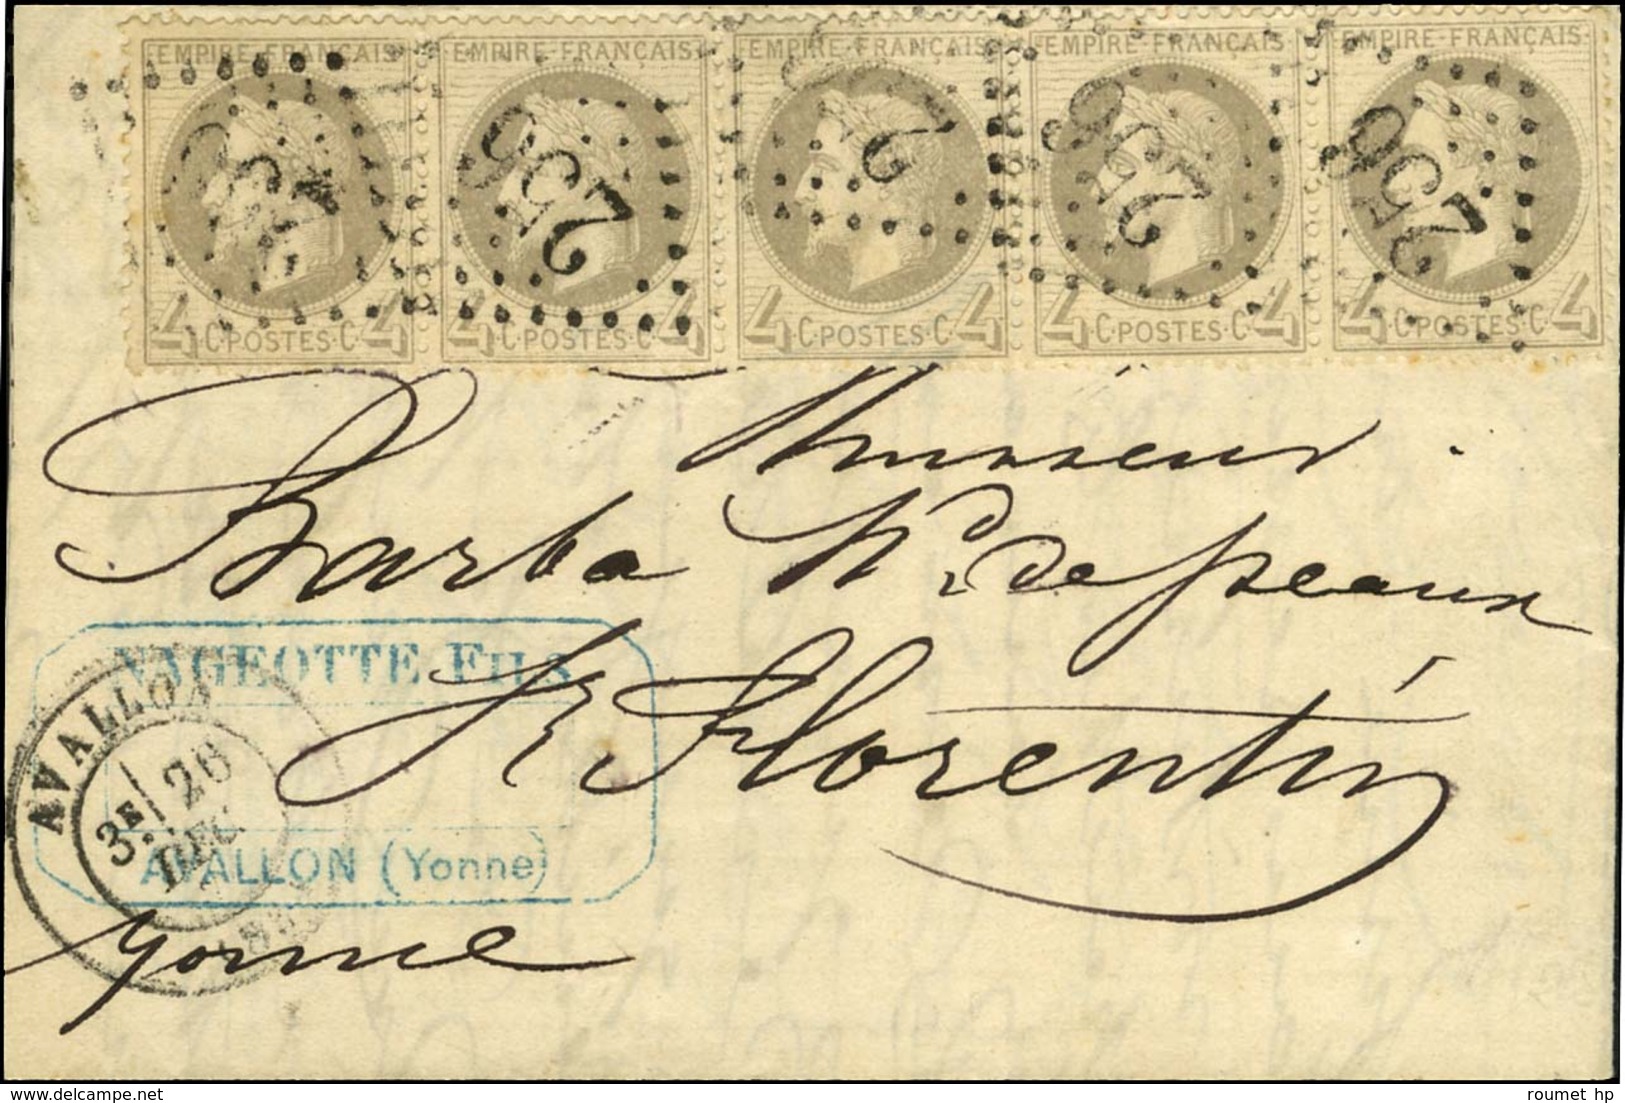 EMPIRE·FRANÇAIS· EMPIRE·FRANÇAIS· EMPIRE·FRANÇAIS· EMPIRE·FRANÇAIS· EMPIRE·FRANÇAIS·
256 2 256 256
4 C·POSTES·C 4 4 C·POSTES·C 4 4 C·POSTES·C 4 4 C·POSTES·C 4 4 C·POSTES·C 4
Monsieur
Barba Md de peaux
St Florentin
Yonne
NAGEOTTE FILS
AVALLON (Yonne)
AVALLON
3E 26
DEC
roumet hp